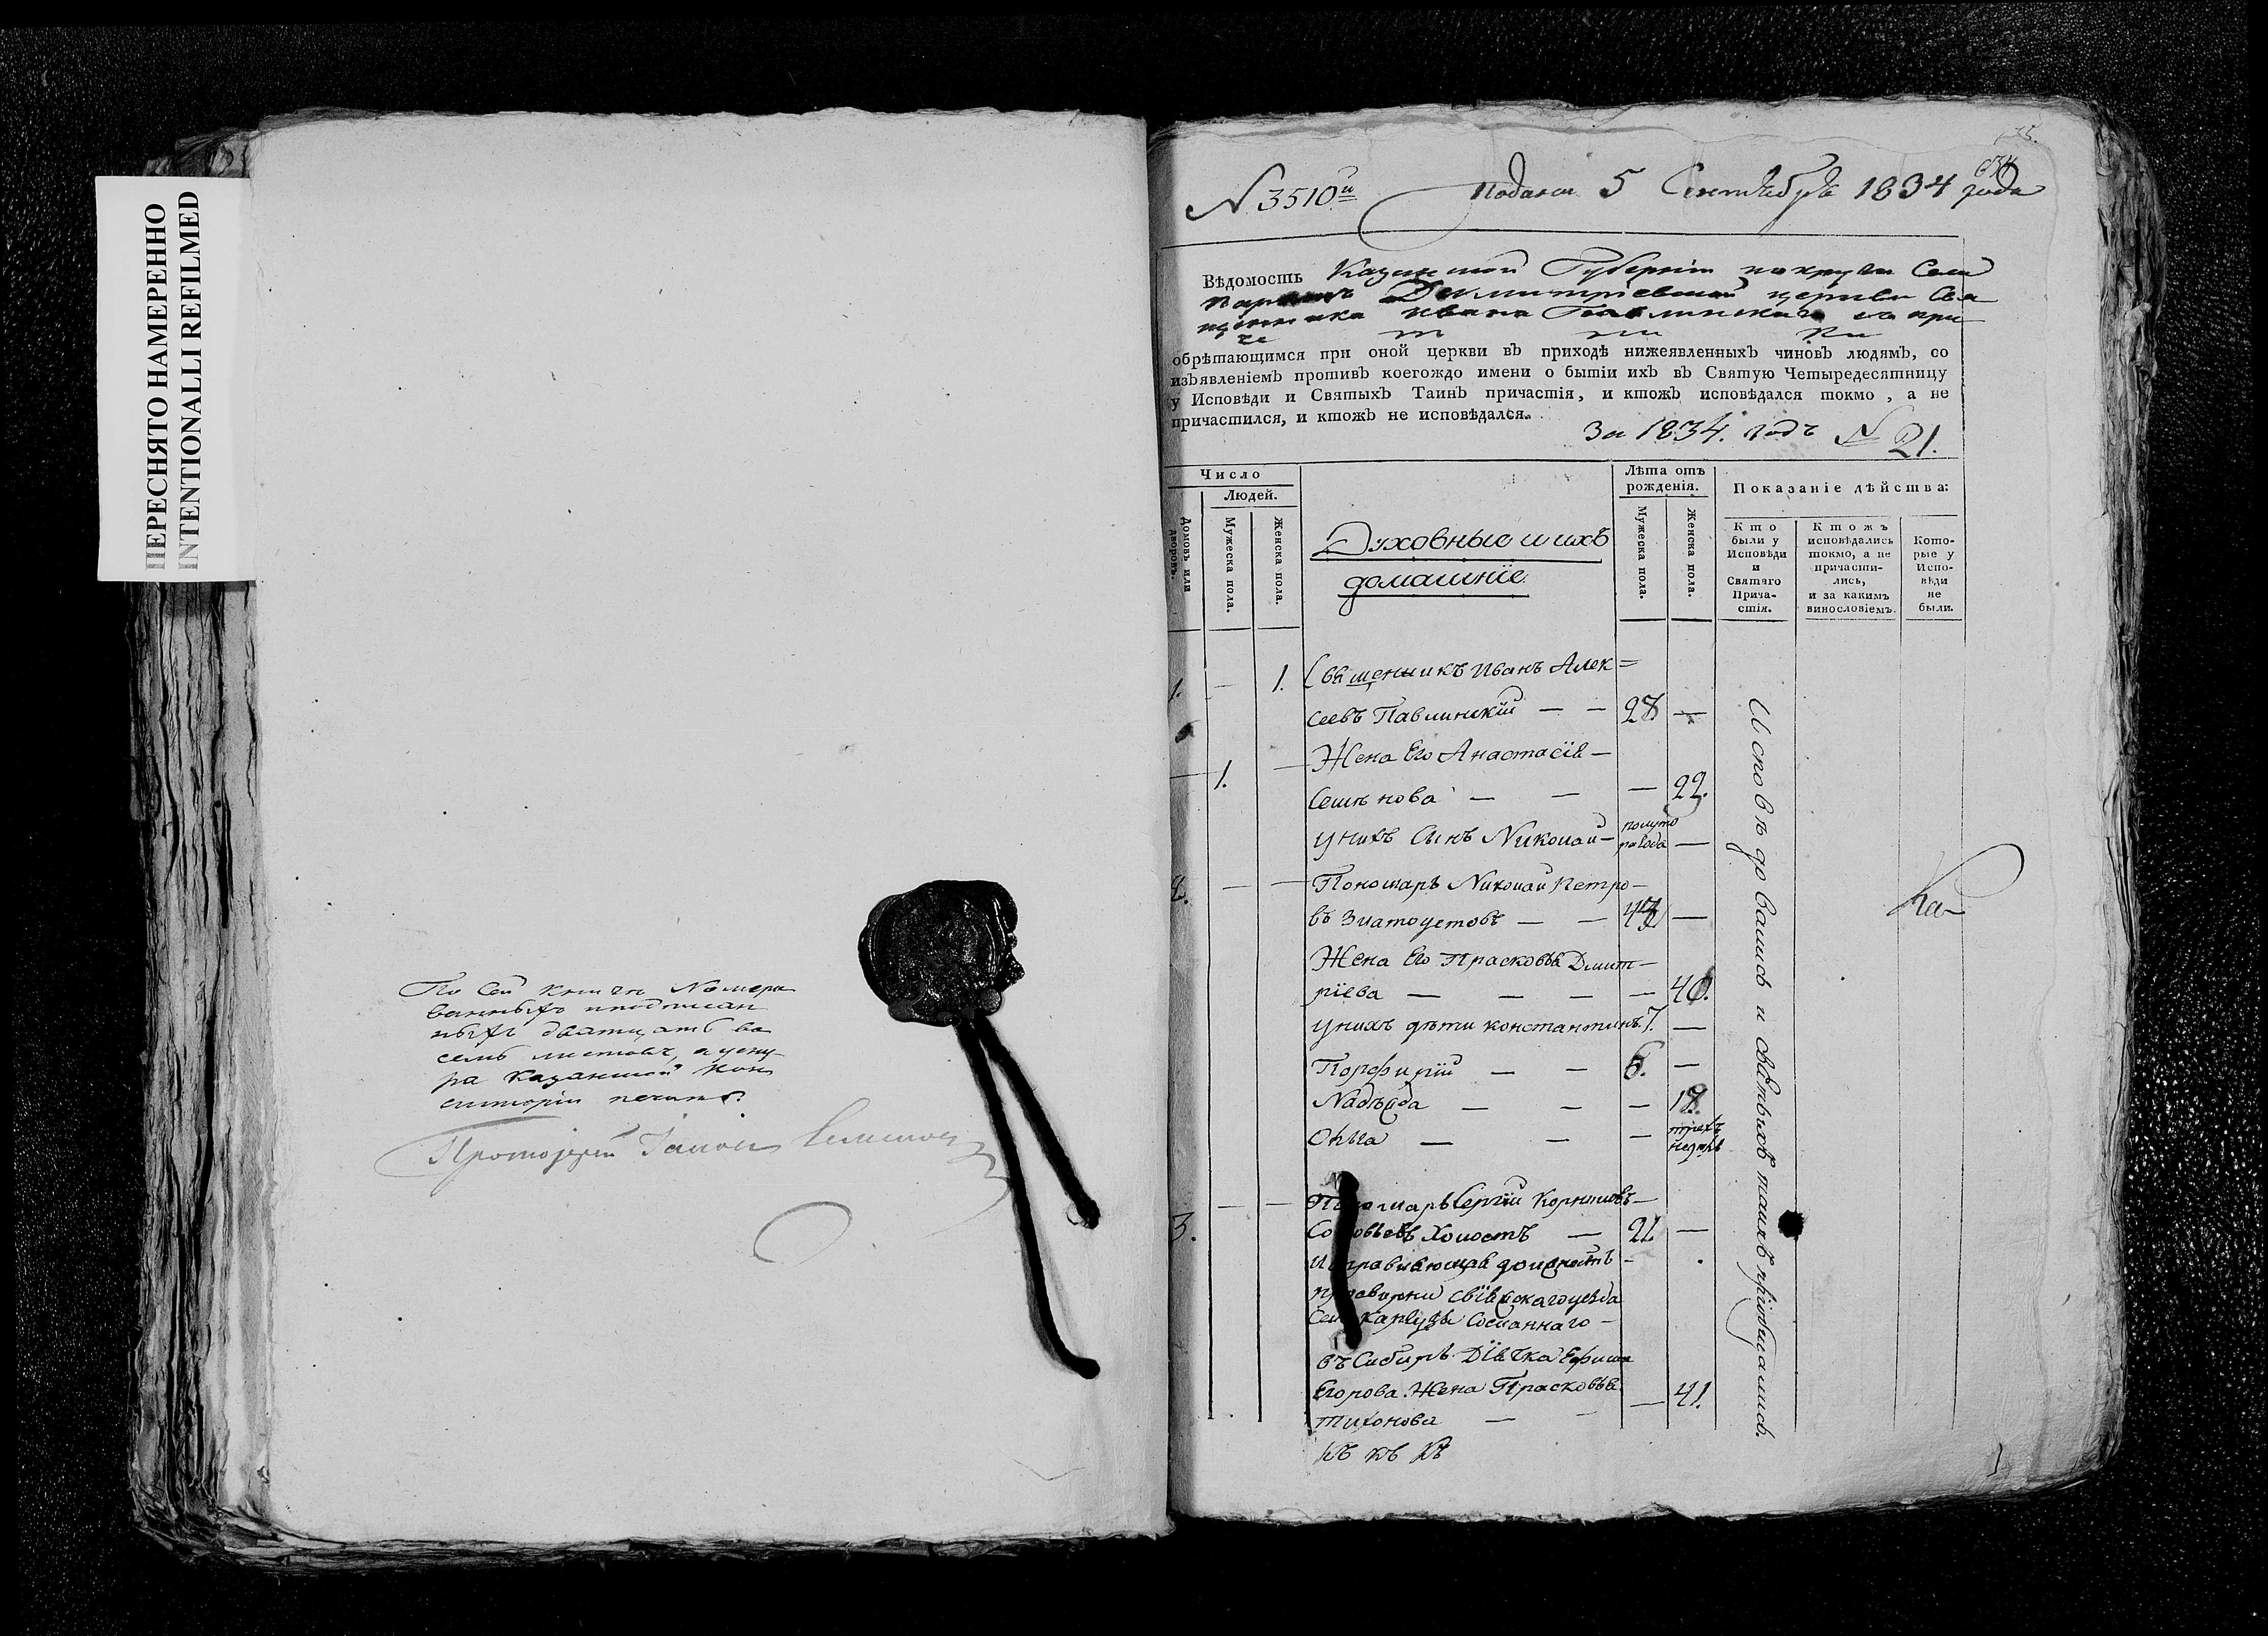 ПЕРЕСНЯТО НАМЕРЕННО
INTENTIONALLI REFILMED
По сей книгѣ Номеро
ванныхъ и подписан
ныхъ двятцать во
семь листовъ, а у сну
ра Казанской Кон
систоріи печать.
Протоіерей
N 3510й
Подана 5 Сентября 1834 года
Вѣдомость Казанской Губерніи села
Димитріевской церкви Свя
щенника Ивана Павлинскаго съ при
че т ни ки
обрѣтающимся при оной церкви въ приходѣ нижеявленныхъ чиновъ людямъ, со
изъявленіемъ противъ коегождо имени о бытіи ихъ въ Святую Четыредесятницу
у Исповѣди и Святыхъ Таинъ причастія, и ктожъ исповѣдался токмо, а не
причастился, и ктожъ не исповѣдался.
За 1834. годъ N 21.
Число
Людей.
Домовъ или дворовъ.
Мужеска пола.
Женска пола.
Духовные и ихъ
домашніе
Лѣта отъ
рожденія.
Мужеска пола.
Женска пола.
Показаніе дѣйства:
Кто
были у
Исповѣди
и
Святаго
Прича-
стія.
Ктожъ
исповѣдались
токмо, а не
причасти-
лись,
и за какимъ
винословіемъ.
Кото-
рые у
Испо-
вѣди
не
были.
1. — 1. Священникъ Иванъ Алек=
сеевъ Павлинскій — — 28 —
Жена Его Анастасія —
1. Семенова — — — 22.
у нихъ Сынъ Николай — полуто
ра года —
2. — — Пономарь Николай Петро-
въ Златоустовъ — — 43 —
Жена Его Прасковья Димит-
ріева — — — — 40.
у нихъ дѣти Константинъ 7. —
Порфирій — — 6. —
Надежда — — — 18.
Ольга — — — трехъ
недѣль
3. — — Пономарь Сергій Корниловъ —
Соловьевъ Холостъ — 21 —
Исправляющая должность
просвирни Свіяжскаго уезда
Села Сосланнаго —
въ Сибирь Дьячка Ефима
Егорова. Жена Прасковья
Тихонова — — — 41.
къ къ къ
Исповѣдовались и Святыхъ таинъ пріобщались.
Ка-